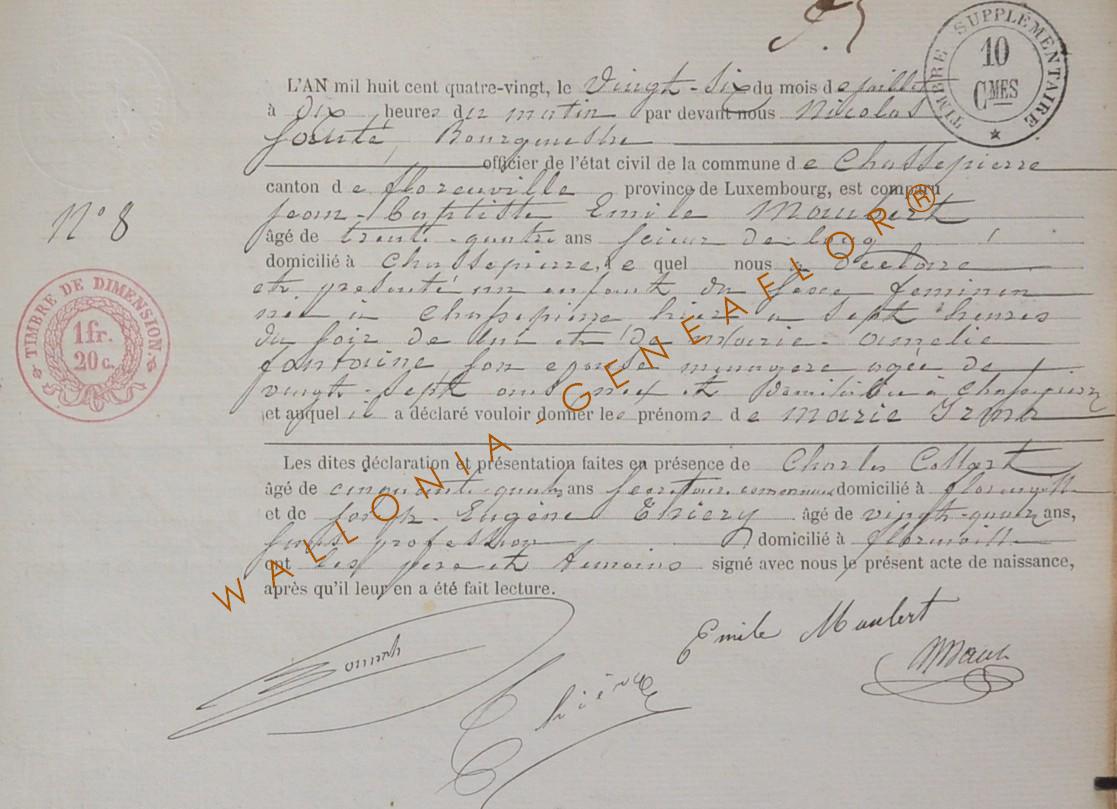 TIMBRE SUPPLÉMENTAIRE
10
CMES
L'AN mil huit cent quatre-vingt, le Vingt-six du mois de juillet
à Dix heures du matin par devant nous Nicolas
Bourgmestre
officier de l'état civil de la commune de Chassepierre
canton de florenville province de Luxembourg, est comparu
Jean-Baptiste Emile Maubert
N° 8
âgé de trente-quatre ans scieur de long
domicilié à Chassepierre, le quel nous a déclaré
et présenté un enfant du sexe feminin
née à Chassepierre hier à sept heures
du soir de lui et de Marie-Amélie
fontaine son epouse menagere agée de
vingt-sept ans et Domiciliée à Chassepierre
et auquel il a déclaré vouloir donner les prénoms de Marie Irma
TIMBRE DE DIMENSION.
1 fr.
20 c.
Les dites déclaration et présentation faites en présence de Charles Collart
âgé de cinquante-quatre ans secretaire communal domicilié à florenville
et de Joseph-Eugène Thiery âgé de vingt-quatre ans,
sans profession domicilié à florenville
ont les père et temoins signé avec nous le présent acte de naissance,
après qu'il leur en a été fait lecture.
Emile Maubert
WALLONIA-GENEAFLOR®